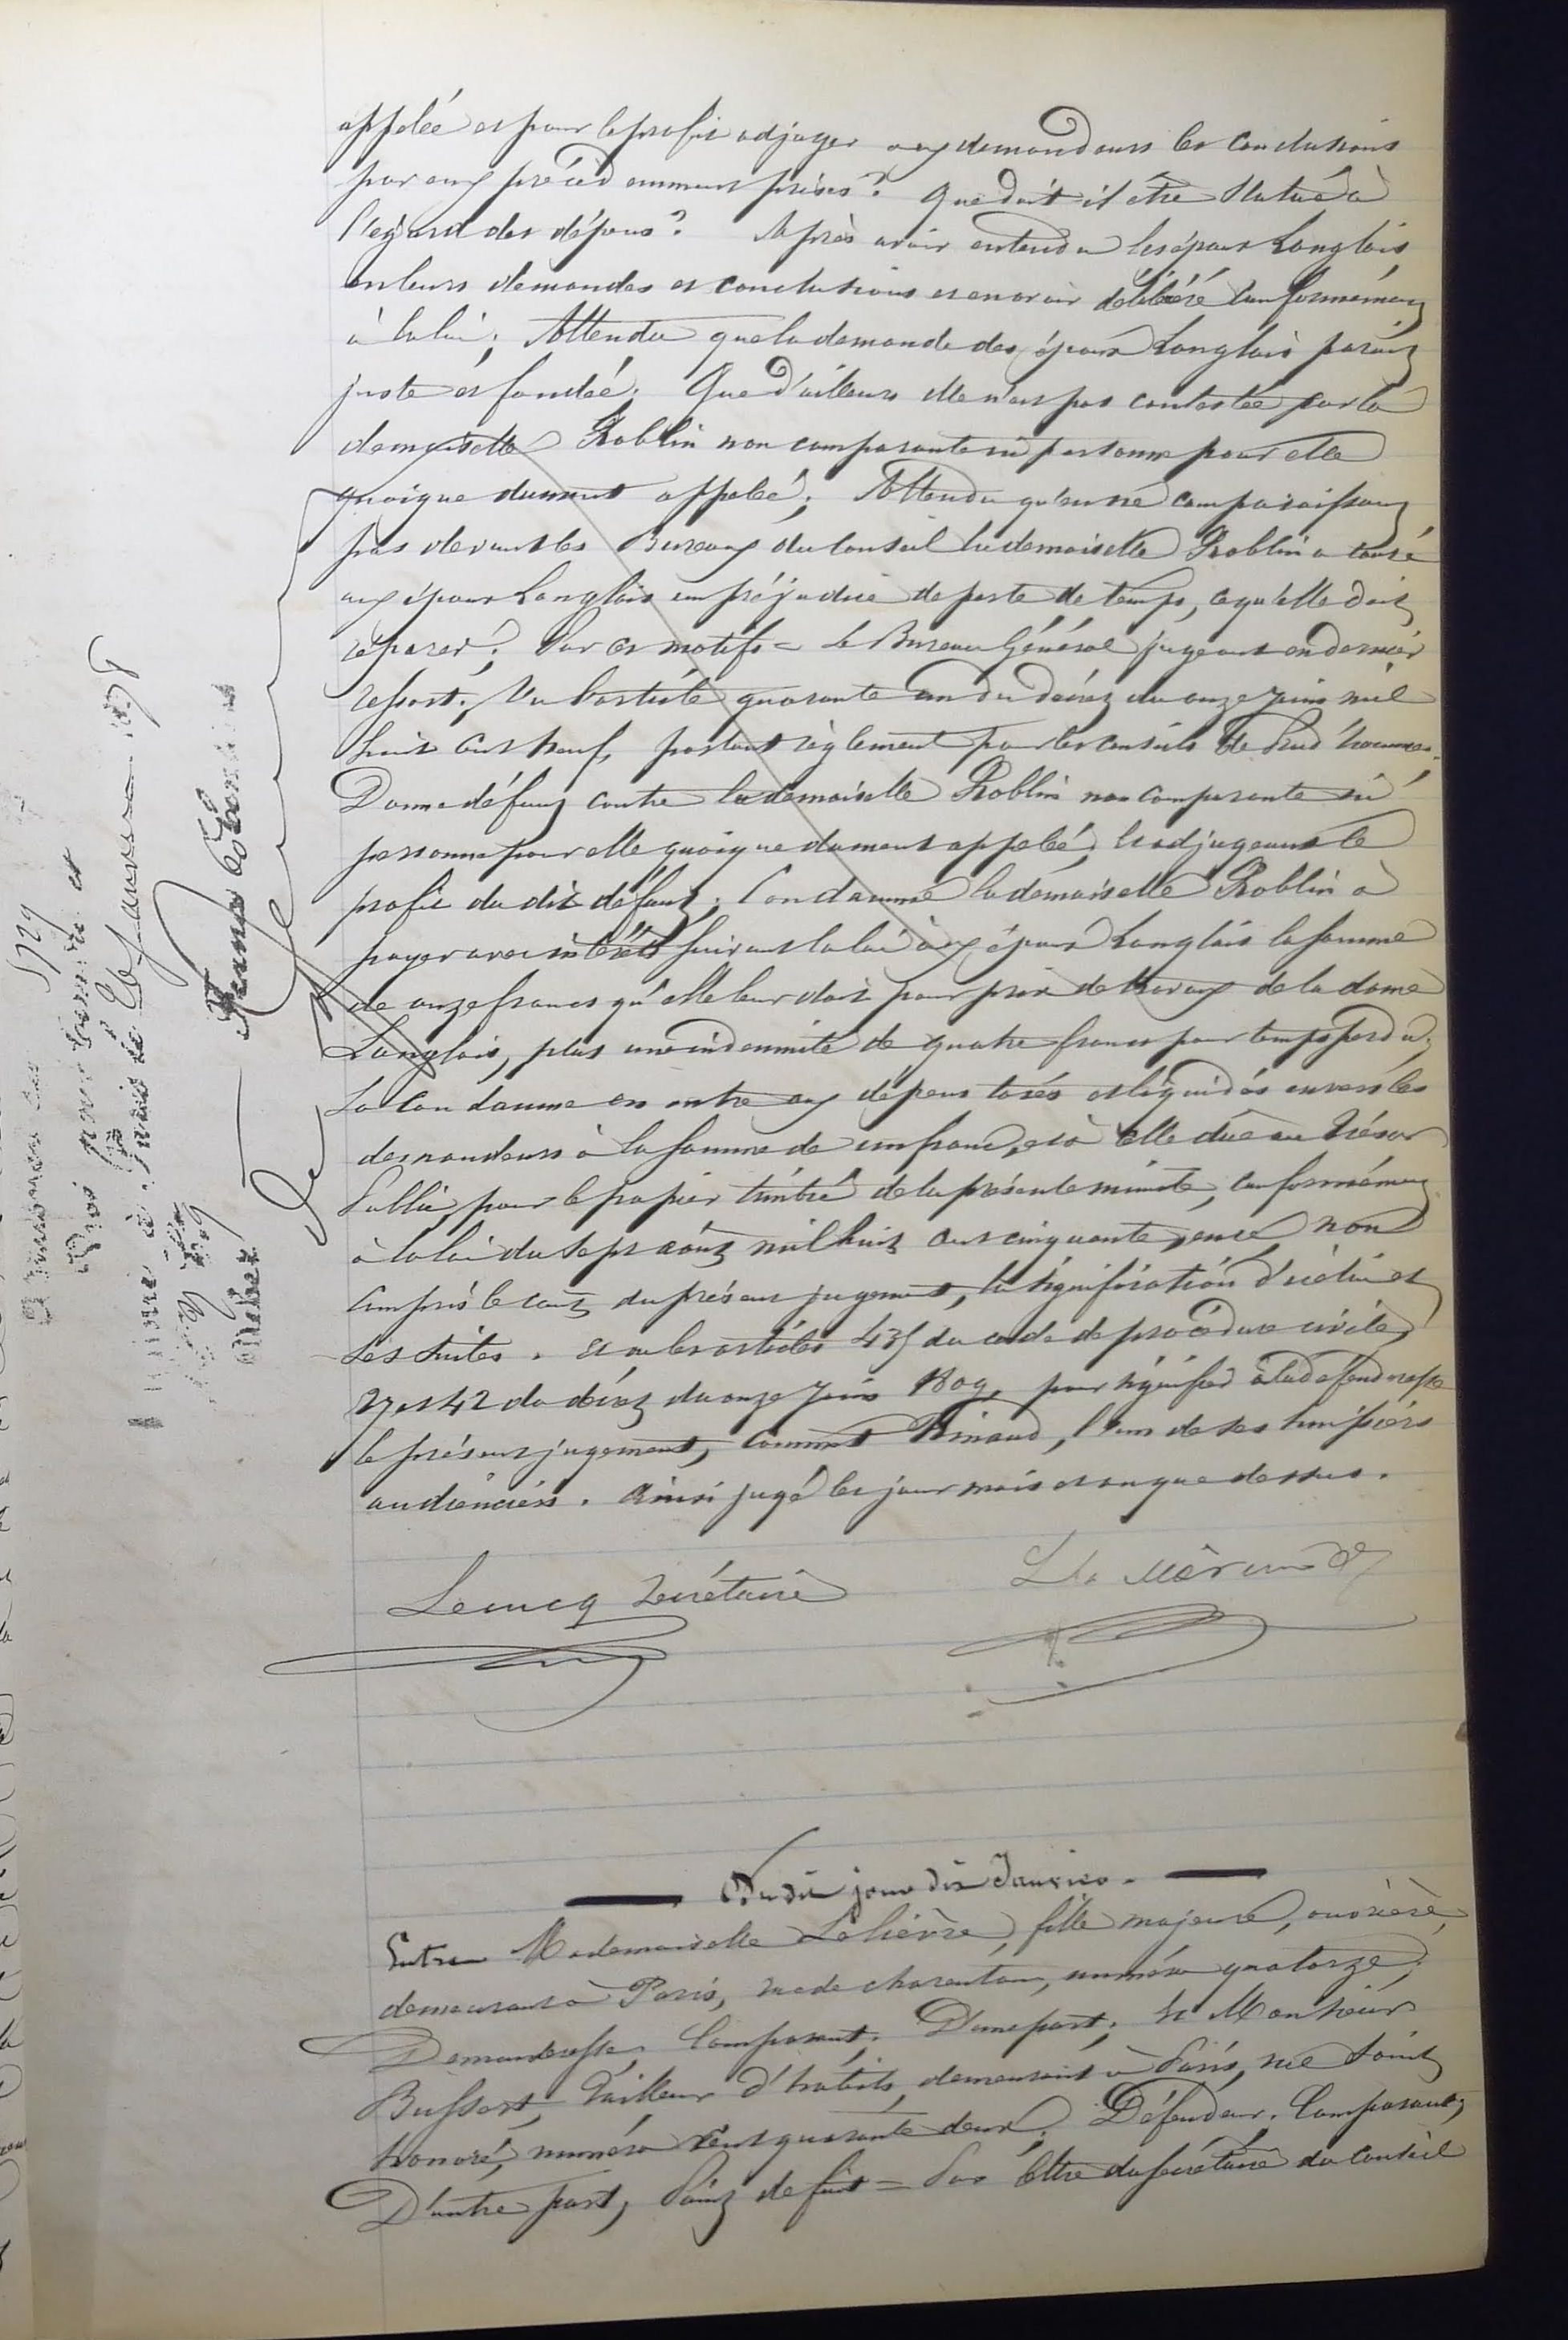 appelée et pour le profit adjuger aux demandeurs les conclusions
par eux précédemment prises? Que doit-il être statué à
l'égard des dépens? Après avoir entendu les époux Langlois
en leurs demandes et conclusions et en avoir délibéré conformément
à la loi; Attendu que la demande des époux Langlois parait
juste et fondée; Que d'ailleurs elle n'est pas contestée par la
demoiselle Roblin non comparante ni personne pour elle
quoique dument appelée; Attendu qu'en ne comparaissant
pas devant les Bureaux du Conseil la demoiselle Roblin a causé
aux époux Langlois un préjudice de perte de temps, ce qu'elle doit
réparer; Par ces motifs = Le Bureau Général jugeant en dernier
ressort; Vu l'article quarante un du décret du onze juin mil
huit cent neuf, portant règlement pour les conseils de Prud'hommes.
Donne défaut contre la demoiselle Roblin non comparante ni
personne pour elle quoique dument appelée; Et adjugeant le
profit du dit défaut; Condamne la demoiselle Roblin à
payer avec intérêts suivant la loi aux époux Langlois la somme
de onze francs qu'elle leur doit pour prix de travaux de la dame
Langlois, plus une indemnité de quatre francs pour temps perdu;
La condamne en outre aux dépens taxés et liquidés envers les
demandeurs à la somme de un franc, et à celle dûe au Trésor
Public, pour le papier timbré de la présente minute, conformément
à la loi du sept août mil huit cent cinquante, ence non
compris le coût du présent jugement, la signification d'icelui et
ses suites. Et vu les articles 435 du code de procédure civile,
27 et 42 du décret du onze juin 1809, pour signifier à la défenderesse
le présent jugement, commet Pinaud, l'un de ses huissiers
audienciers. Ainsi jugé les jour mois et an que dessus.
Lecucq Secrétaire
Du dit jour dix Janvier.
Entre Mademoiselle Lelièvre, fille majeure, ouvrière,
demeurant à Paris, rue de charenton, numéro quatorze;
Demanderesse, Comparant; D'une part; Et Monsieur
Bussert, Tailleur d'habits, demeurant à Paris, rue Saint
honoré, numéro cent quarante deux; Défendeur; Comparant;
D'autre part; Point de fait = Par lettre du secrétaire du Conseil